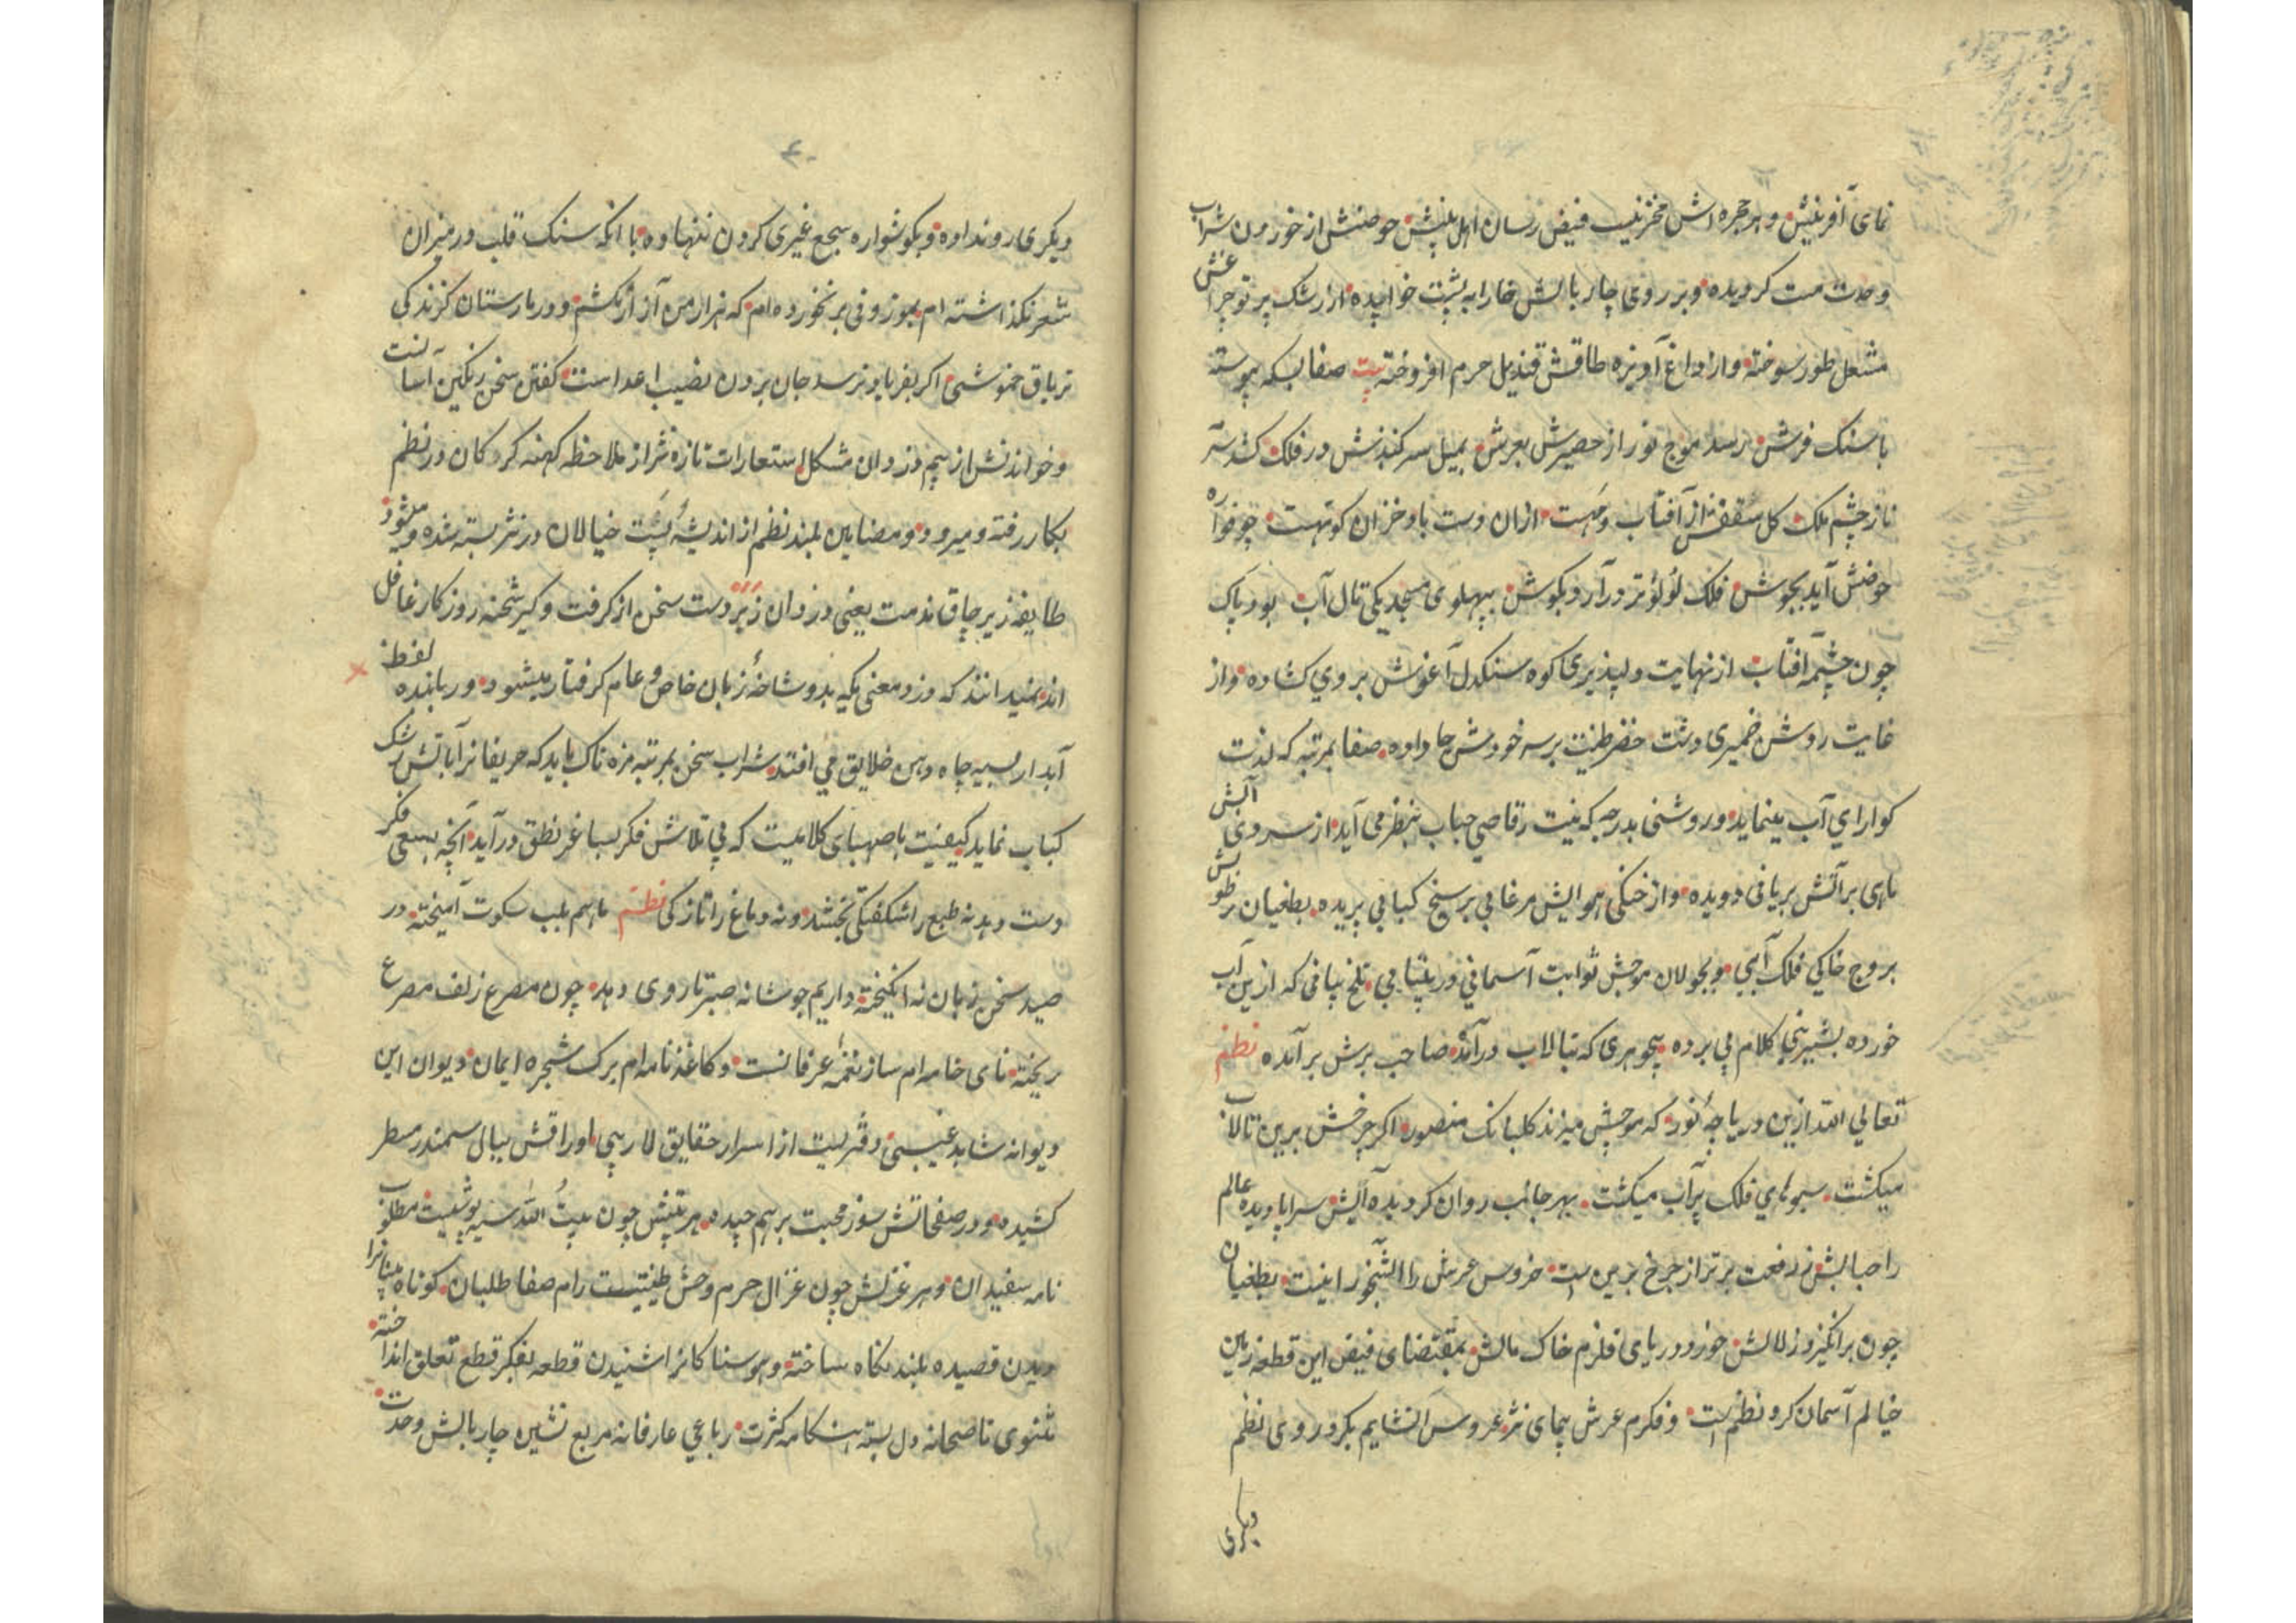 نمای آفرینش و هر حجره اش مخزنیست فیض رسان اهل بینش حوضش از خوردن شراب
وحدت مست کردیده و بر روی چار بالش خارا به پشت خوابیده از رشک پرتو چراغش
مشعل طور سوخته و از داغ آویزه طاقش قندیل حرم افروخته بیت صفا بسکه پیوسته
با سنک فرشش رسد موج نور از حصیرش بعرش بمیل سر کنبذش در فلک کشد سرمه
ناز چشم ملک کل سقفش از آفتاب و مهست ازان دست باد خزان کوتهست چو فواره
حوضش آید بجوش فلک لؤلؤ تر در آرد بکوش بپهلوی مسجد یکی تال آب بود پاک
چون چشمه آفتاب از نهایت دلپذیری کوه سنکدل آغوش بروی کشاده و از
غایت روشن ضمیری دشت خضر طینت بر سر خودش جا داده صفا بمرتبه که لذت
کوارای آب مینماید و روشنی بدرجه که نیت رقاصی حباب بنظر می آید از سردی آبش
ماهی بر آتش بریانی دویده و از خنکی هوایش مرغابی بر سیخ کبابی پریده بطغیان رطوبتش
بروج خاکی فلک آبی و بجولان موجش ثوابت آسمانی در بیتابی تلخ بیانی که ازین آب
خورده بشیرینی کلام پی برده بیجوهری که بتالاب در آمده صاحب برش بر آمده نظم
تعالی الله ازین دریاچه نور که موجش میزند کلبانک منصور اکر چرخش برین تالاب
میکشت سبوهای فلک پر آب میکشت بهر جانب روان کردیده آبش سراپا دیده عالم
را حبابش ز رفعت برتر از چرخ برین است خروس عرش را آبشخور اینست بطغیان
چون برانکیزد زلالش خورد دریای قلزم خاک مالش بمقتضای فیض این قطعه زمین
خیالم آسمان کرد نظم است و فکرم عرش پیمای نثر عروس انشایم بکر و روی نظم
دیکری
۶۰
دیکری رو نداده و بکوشواره سجع غیری کردن ننهاده با آنکه سنک قلب در میزان
شعر نکذاشته ام بموزونی بر نخورده ام که هزار من آزار نکشم و در مارستان کزندکی
تریاق خموشی اکر بفریاد نرسد جان بردن نصیب اعداست کفتن سخن رنکین آسانست
و خواندنش از بیم دزدان مشکل استعارات تازه نثر از ملاحظه کهنه کردکان در نظم
بکار رفته و میرود و مضامین بلند نظم از اندیشه پست خیالان در نثر بسته شده و میشود
طایفه زیر چاق مذمت یعنی دزدان زبردست سخن از کرفت و کیر شحنه روزکار غافل
اند نمیدانند که دزد معنی یکه بدو شاخه زبان خاص و عام کرفتار میشود و رباینده لفظ
آبدار بسیه چاه دهن خلایق می افتد شراب سخن بمرتبه مزه ناک باید که حریفانرا بآتش رشک
کباب نماید کیفیت با صهبای کلامیست که بی تلاش فکر بساغر نطق در آید آنچه بسعی فکر
دست دهد نه طبع را شکفتکی بخشد و نه دماغ را تازکی نظم ماهم بلب سکوت آمیخته در
صید سخن زبان نه انکیخته داریم چو شانه صبر تا روی دهد چون مصرع زلف مصرع
ریخته نای خامه ام ساز نغمه عرفانست و کاغذ نامه ام برک شجره ایمان دیوان این
دیوانه شاهد غیبی دفتریست از اسرار حقایق لاریبی اوراقش ببال سمندر مسطر
کشیده و در صفحاتش سوز محبت بر هم چیده هر بیتش چون بیت الله سیه پوشیست مطلوب
نامه سفیدان و هر غزلش چون غزال حرم وحش طینتیست رام صفا طلبان کوتاه بینانرا
دیدن قصیده بلند نکاه ساخته و هوسناکانرا شنیدن قطعه بفکر قطع تعلق انداخته
مثنوی ناصحانه دل بسته هنکامه کثرت رباعی عارفانه مربع نشین چار بالش وحدت